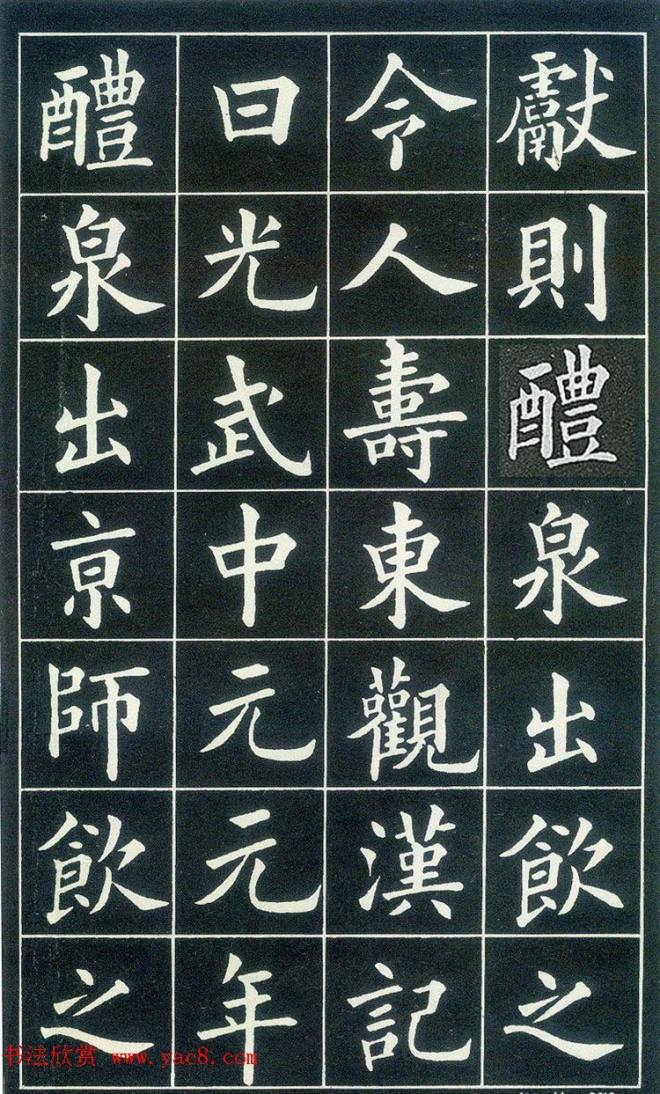 獻則醴泉出飲之
令人壽東觀漢記
曰光武中元元年
醴泉出京師飲之
书法欣赏 www.yac8.com